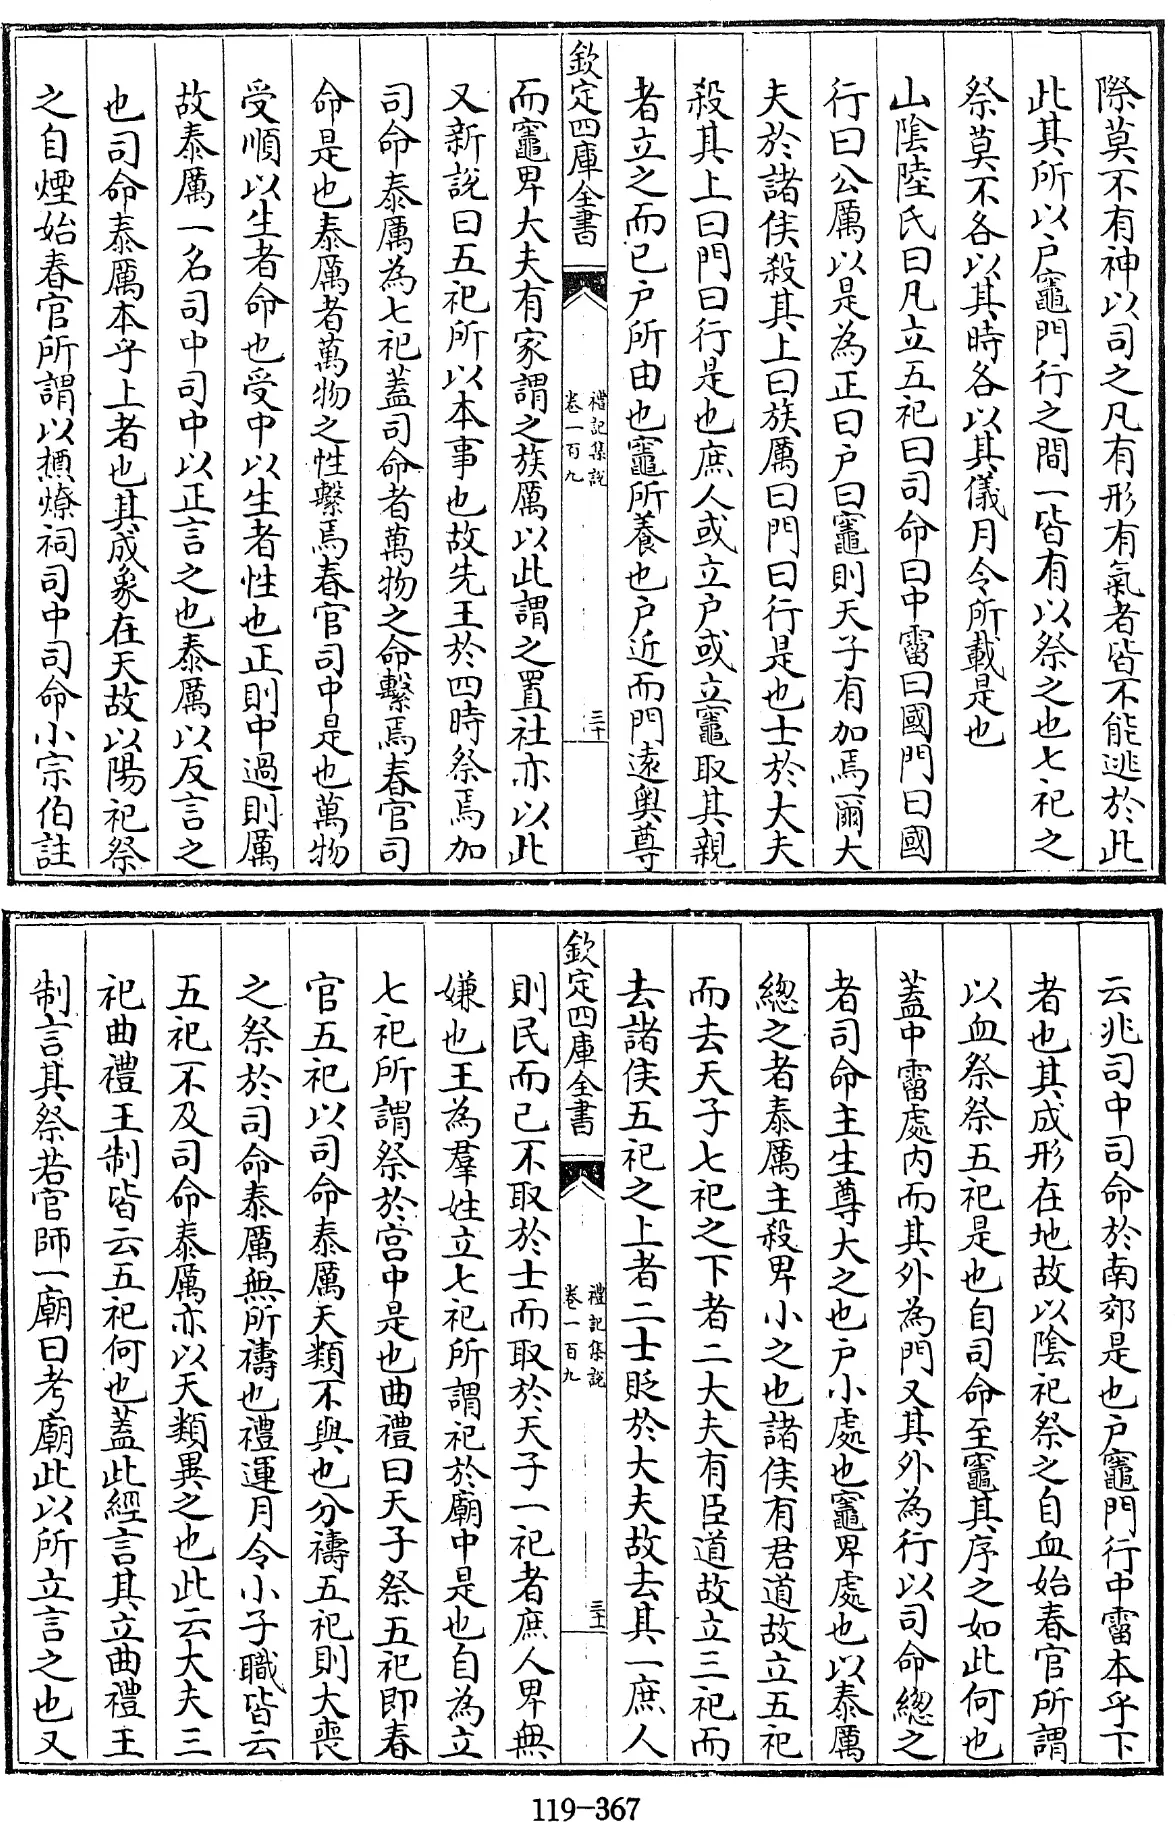 際莫不有神以司之凡有形有氣者皆不能逃於此
此其所以戶竈門行之間一皆有以祭之也七祀之
祭莫不各以其時各以其儀月令所載是也
山陰陸氏曰凡立五祀曰司命曰中霤曰國門曰國
行曰公厲以是為正曰戶曰竈則天子有加焉爾大
夫於諸侯殺其上曰族厲曰門曰行是也士於大夫
殺其上曰門曰行是也庶人或立戶或立竈取其親
者立之而已戶所由也竈所養也戶近而門遠奧尊
欽定四庫全書
禮記集說
卷一百九
三十
而竈卑大夫有家謂之族厲以此謂之置社亦以此
又新說曰五祀所以本事也故先王於四時祭焉加
司命泰厲為七祀蓋司命者萬物之命繫焉春官司
命是也泰厲者萬物之性繫焉春官司中是也萬物
受順以生者命也受中以生者性也正則中過則厲
故泰厲一名司中司中以正言之也泰厲以反言之
也司命泰厲本乎上者也其成象在天故以陽祀祭
之自煙始春官所謂以槱燎祠司中司命小宗伯註
云兆司中司命於南郊是也戶竈門行中霤本乎下
者也其成形在地故以陰祀祭之自血始春官所謂
以血祭祭五祀是也自司命至竈其序之如此何也
蓋中霤處内而其外為門又其外為行以司命總之
者司命主生尊大之也戶小處也竈卑處也以泰厲
總之者泰厲主殺卑小之也諸侯有君道故立五祀
而去天子七祀之下者二大夫有臣道故立三祀而
去諸侯五祀之上者二士貶於大夫故去其一庶人
欽定四庫全書
禮記集說
卷一百九
三十一
則民而已不取於士而取於天子一祀者庶人卑無
嫌也王為羣姓立七祀所謂祀於廟中是也自為立
七祀所謂祭於宫中是也曲禮曰天子祭五祀即春
官五祀以司命泰厲天類不與也分禱五祀則大喪
之祭於司命泰厲無所禱也禮運月令小子職皆云
五祀不及司命泰厲亦以天類異之也此云大夫三
祀曲禮王制皆云五祀何也蓋此經言其立曲禮王
制言其祭若官師一廟曰考廟此以所立言之也又
119-367